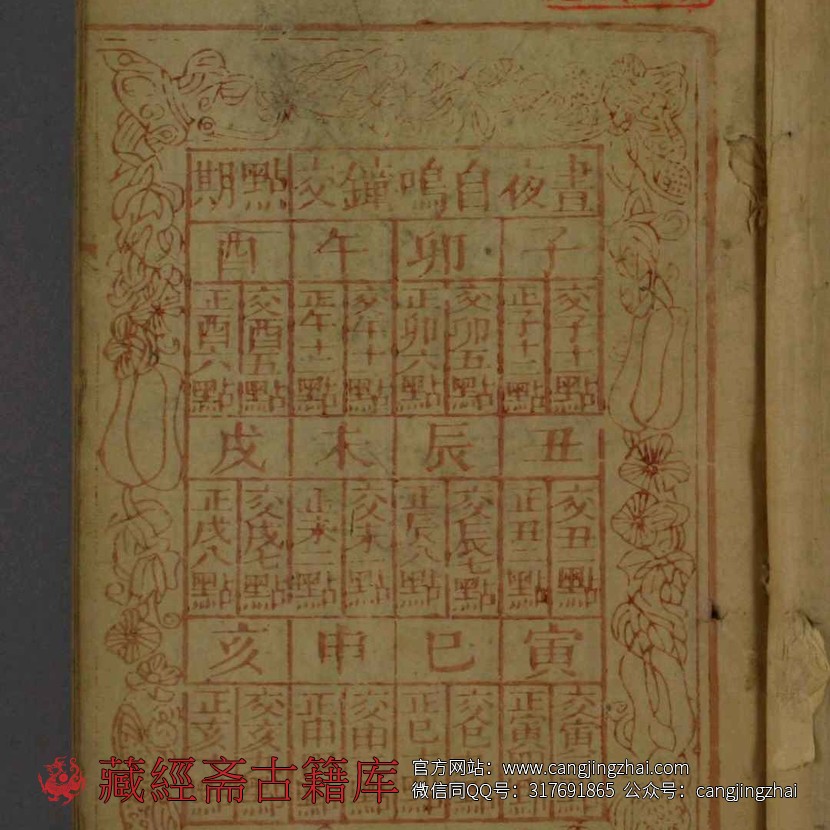 晝夜自鳴鐘交點期
子 卯 午 酉
交子十一點 正子十二點 交卯五點 正卯六點 交午十一點 正午十二點 交酉五點 正酉六點
丑 辰 未 戌
交丑一點 正丑二點 交辰七點 正辰八點 交未一點 正未二點 交戌七點 正戌八點
寅 巳 申 亥
交寅 正寅 交巳 正巳 交申 正申 交亥 正亥
藏經斋古籍库
官方网站：www.cangjingzhai.com
微信同QQ号：317691865 公众号：cangjingzhai